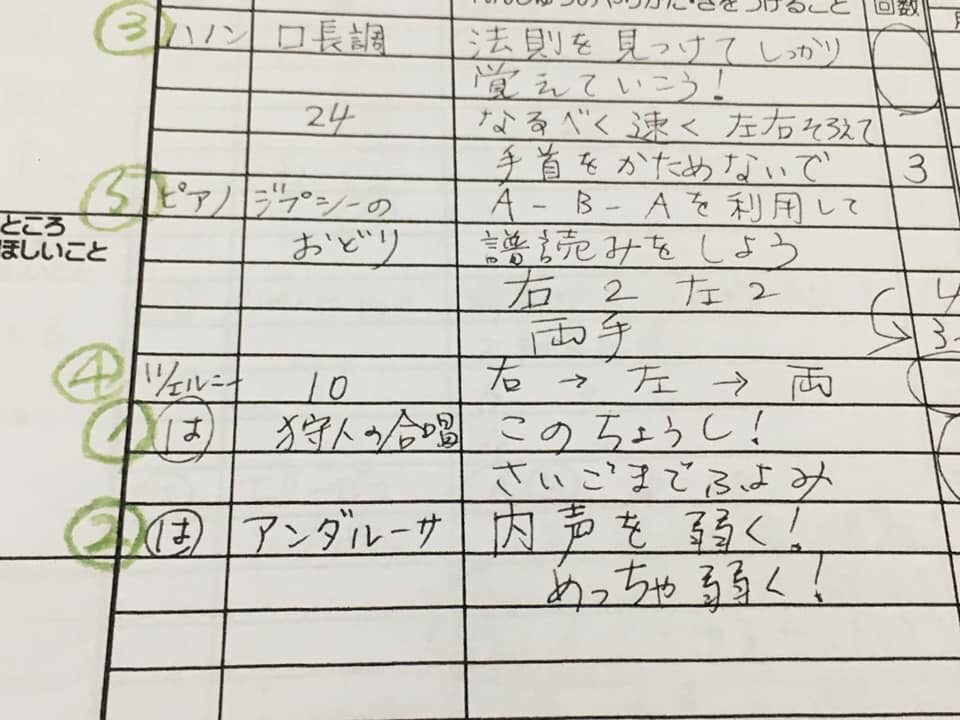 れんしゅうのやりかた・きをつけること 回数
③ ハノン ロ長調 法則を見つけてしっかり
覚えていこう!
24 なるべく速く 左右そろえて
手首をかためないで 3
⑤ ピアノ ジプシーの A-B-Aを利用して
ところ
ほしいこと
おどり 譜読みをしよう
右 2 左 2 4
両手 3
④ ツェルニー 10 右 → 左 → 両
① は 狩人の合唱 このちょうし!
さいごまでふよみ
② は アンダルーサ 内声を弱く!
めっちゃ弱く!